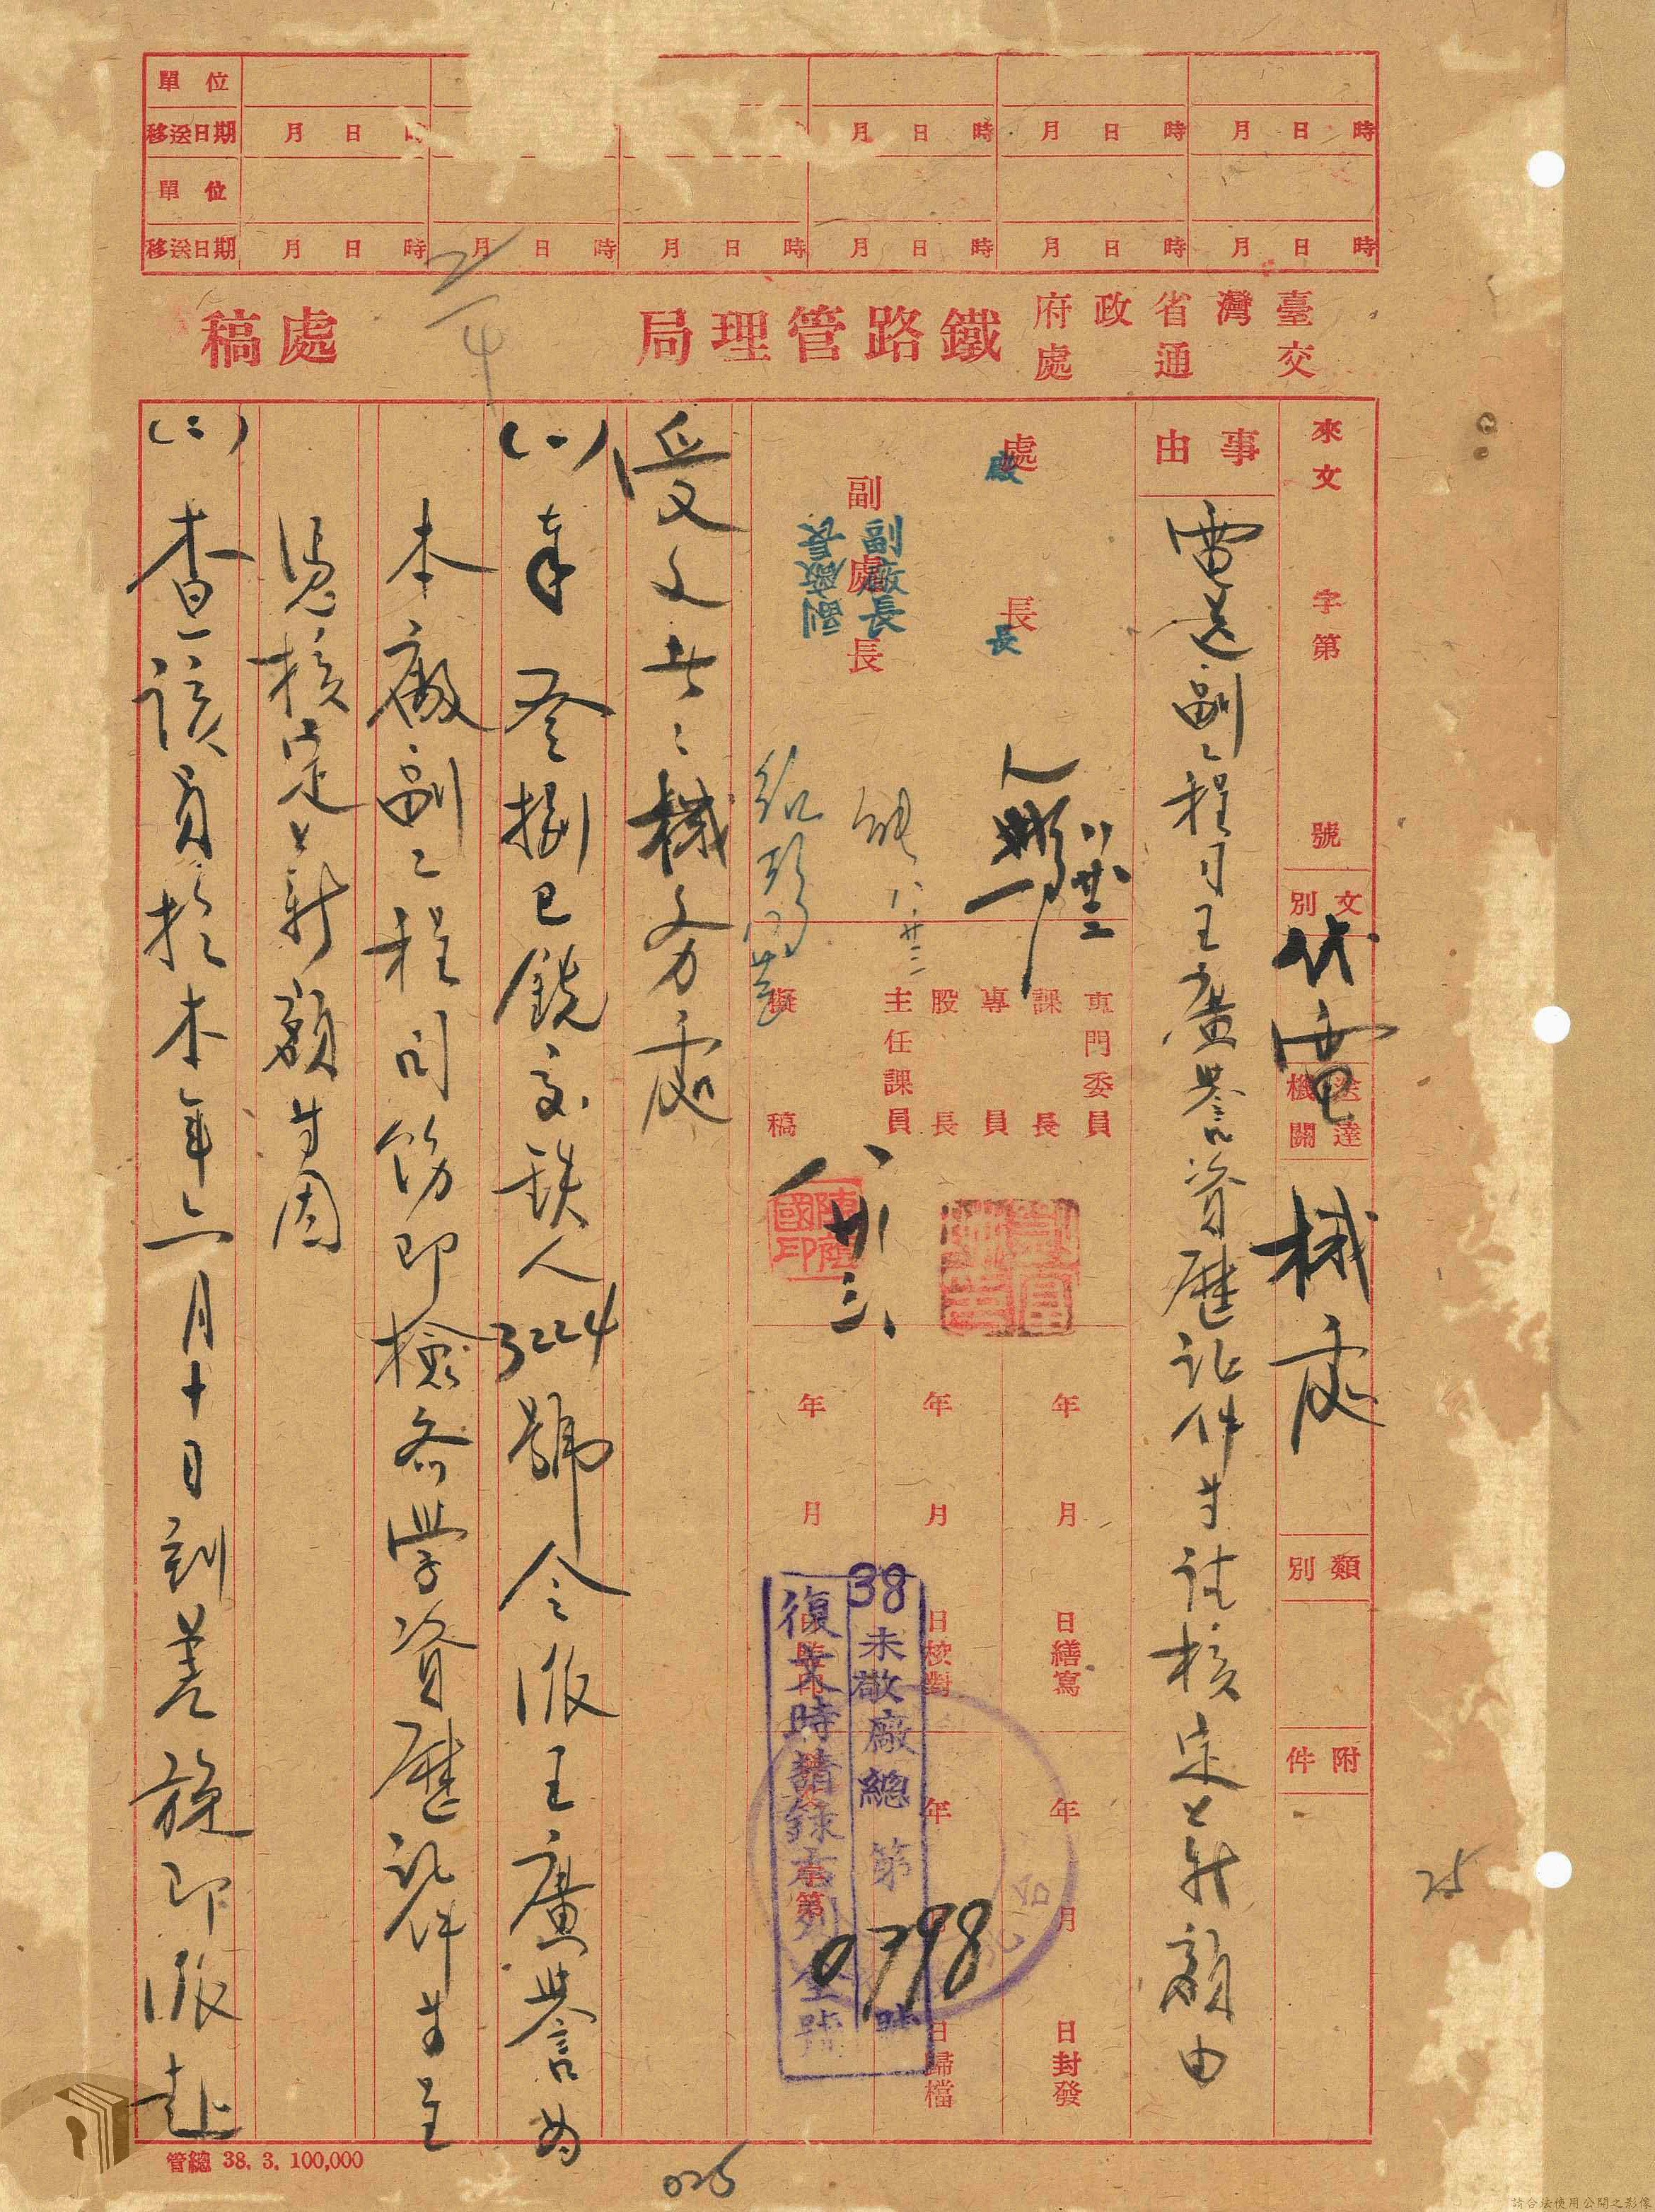 單位
移送日期 月 日 時 月 日 時 月 日 時 月 日 時
單位
移送日期 月 日 時 月 日 時 月 日 時 月 日 時 月 日 時 月 日 時
臺灣省政府
交通處
鐵路管理局
處稿
來文 字第 號
文別 代電
送達機關 機處
類別
附件
事由
電送副工程司王廉譽資歷証件等請核定其薪額由
處長
廠長
副處長
副廠長
副廠長
專門委員
課長
專員
股長
主任課員
擬稿
八廿三
年 月 日繕寫
年 月 日校對
年 月
年 月 日封發
年 日歸檔
字第
38未敬廠總第0798號
復文時請錄右列全號
受文者:機務處
(一)奉 參捌巳銑交鐵人3224號令派王廉譽為
本廠副工程司飭即檢齊學資歷証件等呈
憑核定其薪額等因
(二)查該員於本年六月十日到差旋即派赴
管總 38. 3. 100,000
025
25
請合法使用公開之影像